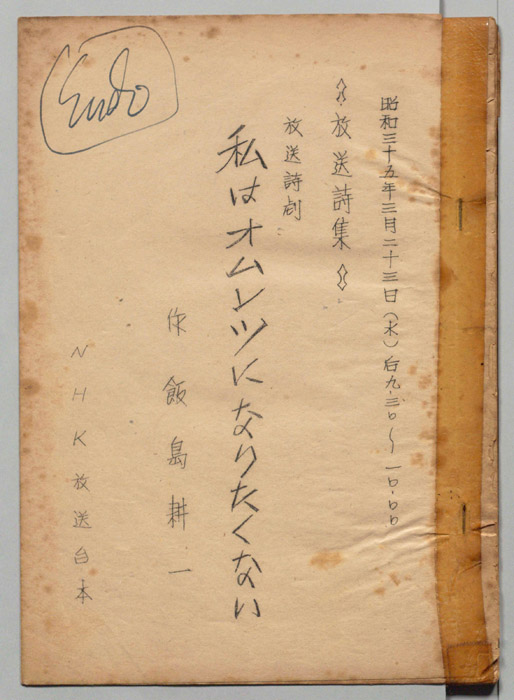 昭和三十五年三月二十三日(水)后九.三〇~一〇.〇〇
放送詩集
放送詩劇
私はオムレツになりたくない
作 飯島耕一
NHK放送台本
Endo